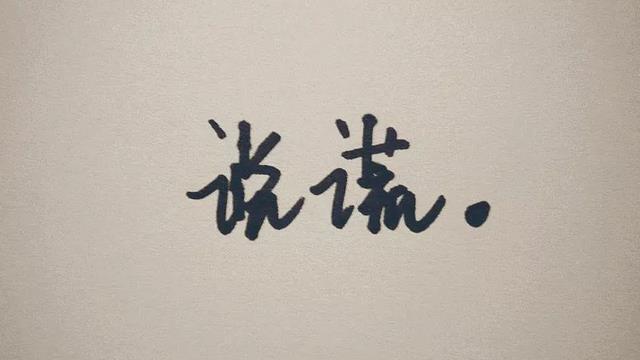 说谎。